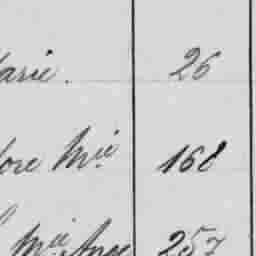 Marie. 26
dore Mie 168
Mie Ange 257